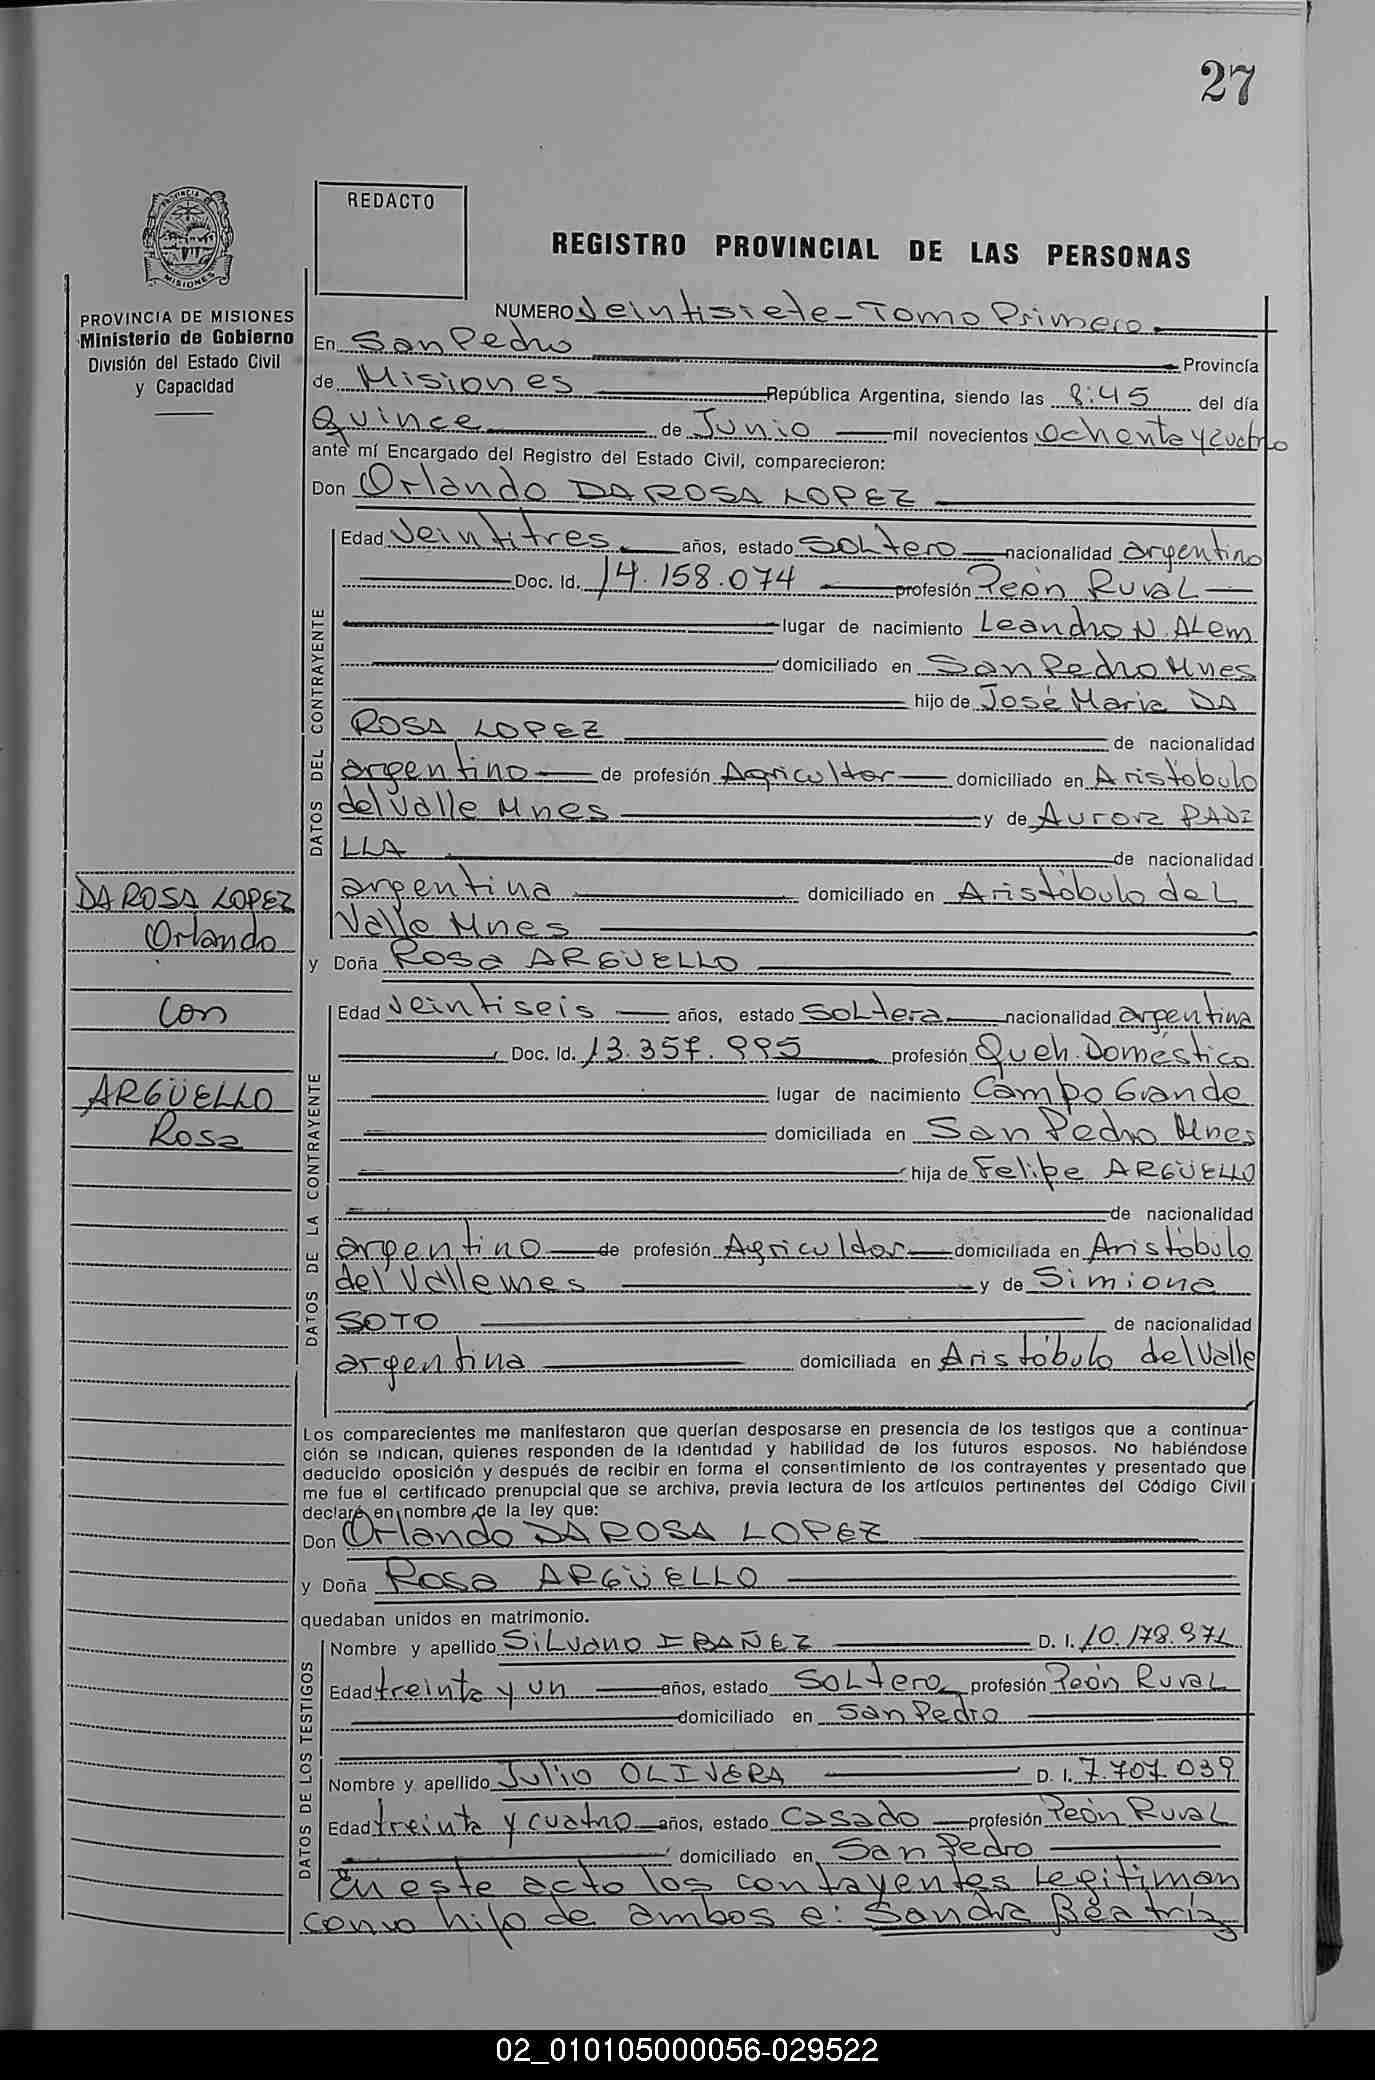 27
REDACTO
PROVINCIA DE
MISIONES
REGISTRO PROVINCIAL DE LAS PERSONAS
PROVINCIA DE MISIONES
Ministerio de Gobierno
División del Estado Civil
y Capacidad
NUMERO Veintisiete - Tomo Primero
En San Pedro Provincia
de Misiones República Argentina, siendo las 8:45 del día
Quince de Junio mil novecientos Ochenta y cuatro
ante mí Encargado del Registro del Estado Civil, comparecieron:
Don Orlando DA ROSA LOPEZ
DATOS DEL CONTRAYENTE
Edad Veintitres años, estado Soltero nacionalidad argentino
Doc. Id. 14.158.074 profesión Peón Rural
lugar de nacimiento Leandro N. ALem
domiciliado en San Pedro Mnes
hijo de José Maria DA
ROSA LOPEZ de nacionalidad
argentino de profesión Agricultor domiciliado en Aristóbulo
del Valle Mnes y de Aurora PADI
LLA de nacionalidad
argentina domiciliado en Aristóbulo del
Valle Mnes
DA ROSA LOPEZ
Orlando
con
ARGÜELLO
Rosa
y Doña Rosa ARGÜELLO
DATOS DE LA CONTRAYENTE
Edad Veintiseis años, estado Soltera nacionalidad argentina
Doc. Id. 13.357.995 profesión Queh. Doméstico
lugar de nacimiento Campo Grande
domiciliada en San Pedro Mnes
hija de Felipe ARGÜELLO
de nacionalidad
argentino de profesión Agricultor domiciliada en Aristóbulo
del Valle Mnes y de Simiona
SOTO de nacionalidad
argentina domiciliada en Aristóbulo del Valle
Los comparecientes me manifestaron que querían desposarse en presencia de los testigos que a continua-
ción se indican, quienes responden de la identidad y habilidad de los futuros esposos. No habiéndose
deducido oposición y después de recibir en forma el consentimiento de los contrayentes y presentado que
me fue el certificado prenupcial que se archiva, previa lectura de los artículos pertinentes del Código Civil
declaré en nombre de la ley que:
Don Orlando DA ROSA LOPEZ
y Doña Rosa ARGÜELLO
quedaban unidos en matrimonio.
DATOS DE LOS TESTIGOS
Nombre y apellido Silvano IBAÑEZ D. I. 10.178.971
Edad treinta y un años, estado Soltero profesión Peón Rural
domiciliado en San Pedro
Nombre y apellido Julio OLIVERA D. I. 7.707.039
Edad treinta y cuatro años, estado Casado profesión Peón Rural
domiciliado en San Pedro
En este acto los contayentes Legitiman
como hijo de ambos a: Sandra Beatriz
02_010105000056-029522